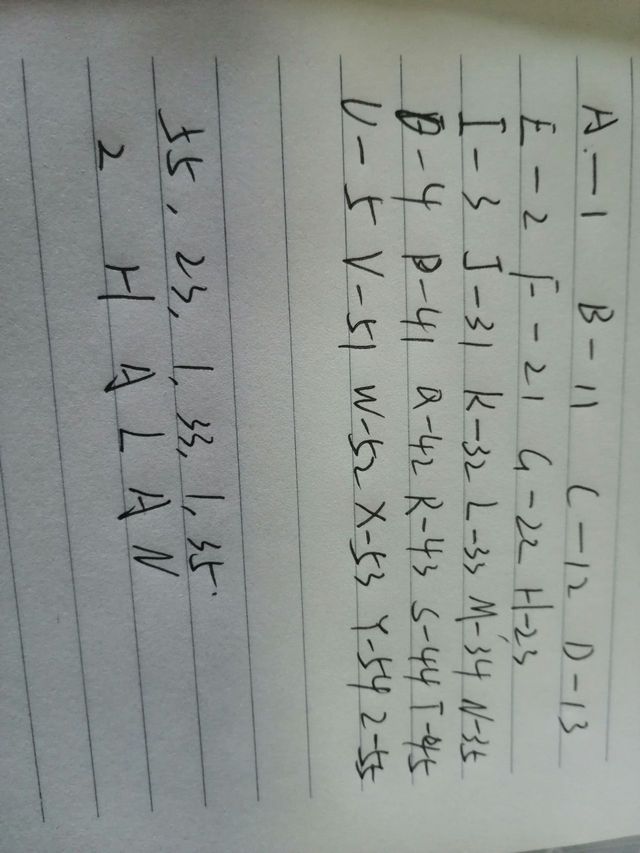 A-1 B-11 C-12 D-13
E-2 F-21 G-22 H-23
I-3 J-31 K-32 L-33 M-34 N-35
O-4 P-41 Q-42 R-43 S-44 T-45
U-5 V-51 W-52 X-53 Y-54 Z-55
55, 23, 1, 33, 1, 35.
Z H A L A N